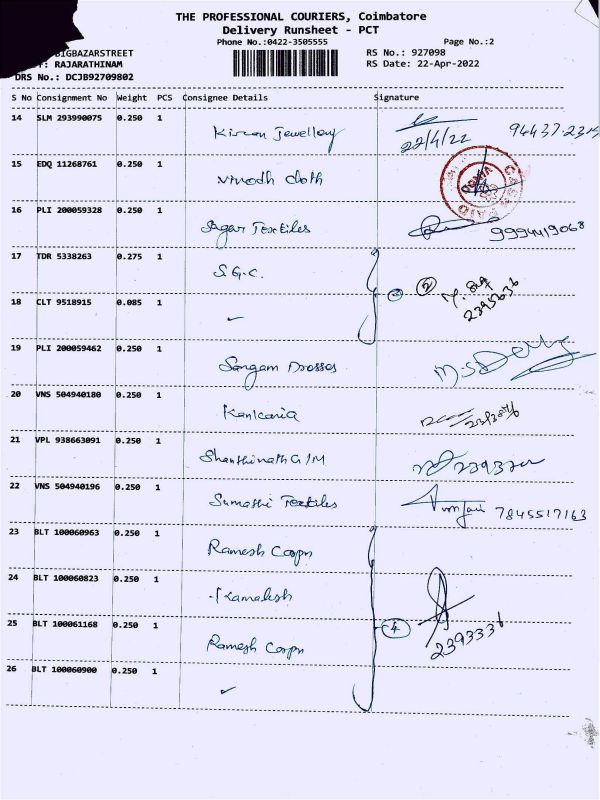 THE PROFESSIONAL COURIERS, Coimbatore
Delivery Runsheet - PCT
Phone No.:0422-3505555 Page No.:2
BIGBAZARSTREET RS No.: 927098
: RAJARATHINAM RS Date: 22-Apr-2022
DRS No.: DCJB92709802
S No Consignment No Weight PCS Consignee Details Signature
14 SLM 293990075 0.250 1 Kiran Jewellery 22/4/22
15 EDQ 11268761 0.250 1 Vinodh cloth
16 PLI 200059328 0.250 1 Sagar Textiles 9994419068
17 TDR 5338263 0.275 1 S.G.C. 2
18 CLT 9518915 0.085 1 ✓ 2395636
19 PLI 200059462 0.250 1 Sangam Drosses M.S
20 VNS 504940180 0.250 1 Kankaria
21 VPL 938663091 0.250 1 Shanthinath G/M
22 VNS 504940196 0.250 1 Sumathi Textiles 7845517163
23 BLT 100060963 0.250 1 Ramesh Corpn
24 BLT 100060823 0.250 1 Kamalesh
25 BLT 100061168 0.250 1 Ramesh Corpn 4 2393336
26 BLT 100060900 0.250 1 ✓